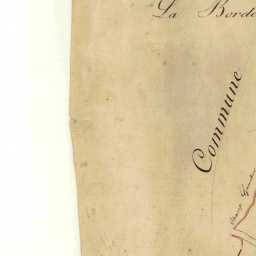 La Borde
Commune